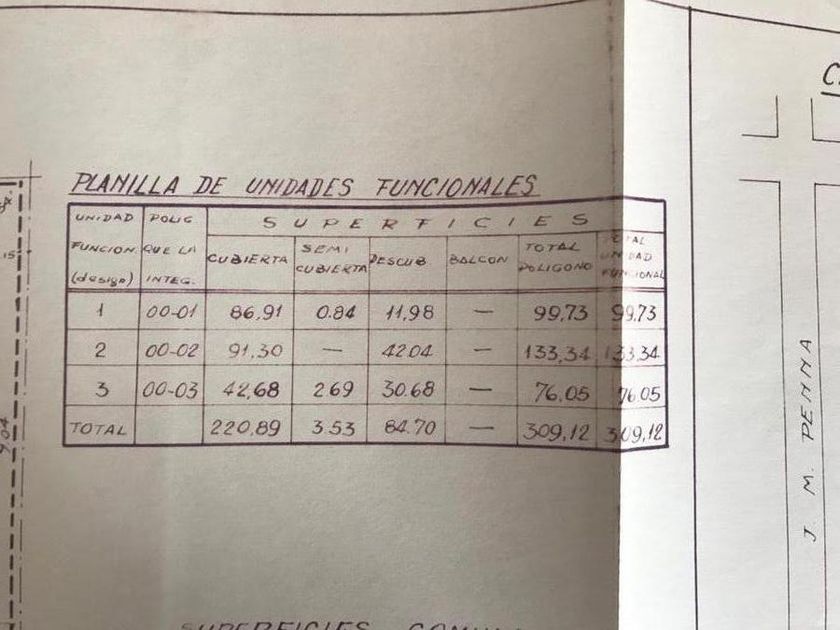 PLANILLA DE UNIDADES FUNCIONALES
UNIDAD FUNCION. (design) POLIG QUE LA INTEG. SUPERFICIES
CUBIERTA SEMI CUBIERTA DESCUB. BALCON TOTAL POLIGONO TOTAL UNIDAD FUNCIONAL
1 00-01 86,91 0.84 11,98 — 99,73 99,73
2 00-02 91,30 — 42 04 — 133,34 133,34
3 00-03 42,68 2 69 30.68 — 76,05 76,05
TOTAL 220,89 3 53 84.70 — 309,12 309,12
J M. PENNA